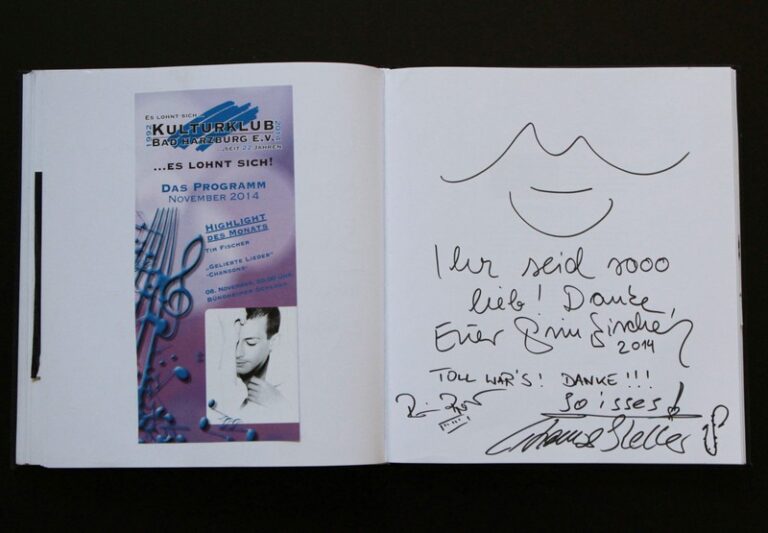 ES LOHNT SICH...
1992
KULTURKLUB
BAD HARZBURG E.V.
...SEIT 22 JAHREN
2014
...ES LOHNT SICH!
DAS PROGRAMM
NOVEMBER 2014
HIGHLIGHT
DES MONATS
TIM FISCHER
„GELIEBTE LIEDER"
-CHANSONS-
08. NOVEMBER, 20.00 UHR
BÜNDHEIMER SCHLOSS
Ihr seid sooo
lieb! Danke,
Euer Tim Fischer
2014
TOLL WAR'S! DANKE!!!
So isses!